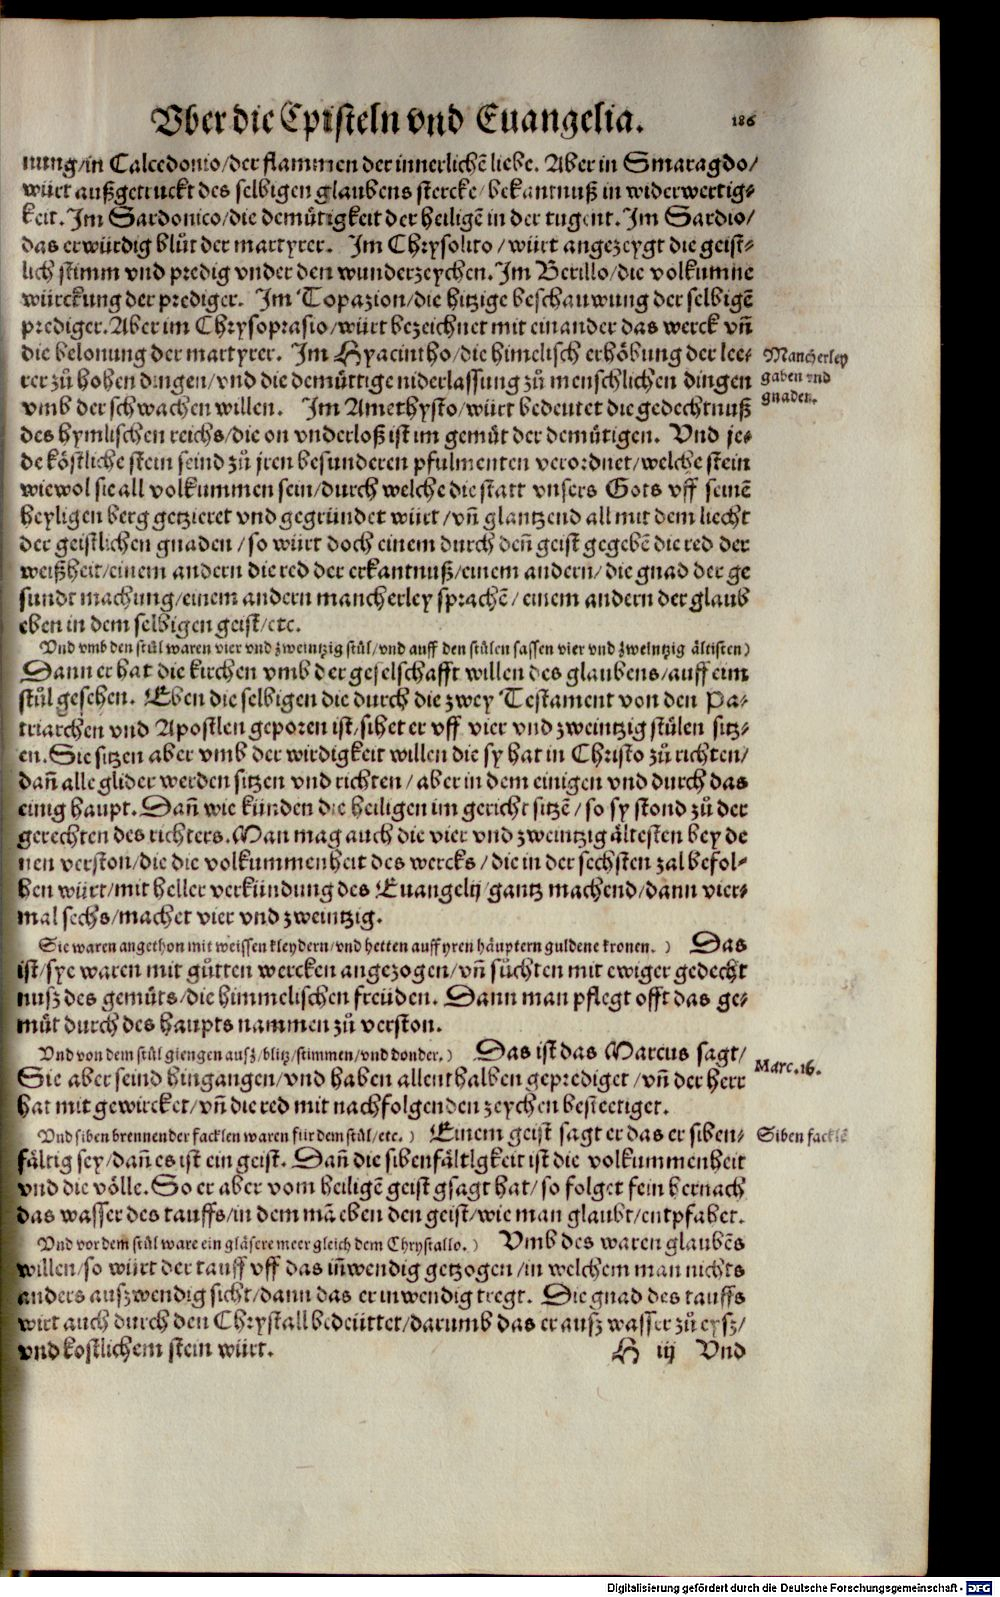 Vber die Episteln vnd Euangelia. 186
nung/in Calcedonio/der flammen der innerlichẽ liebe. Aber in Smaragdo/
würt außgetruckt des selbigen glaubens stercke/bekantnuß in widerwertig-
keit. Im Sardonico/die demütigkeit der heiligẽ in der tugent. Im Sardio/
das erwürdig blůt der martyrer. Im Chrysolito/würt angezeygt die geist-
lich stimm vnd predig vnder den wunderzeychen. Im Berillo/die volkumne
würckung der prediger. Im Topazion/die hitzige beschauwung der selbigẽ
prediger. Aber im Chrysoprasio/würt bezeichnet mit einander das werck vñ
die belonung der martyrer. Im Hyacintho/die himelisch erhöbung der lee-
rer zů hohen dingen/vnd die demüttige niderlassung zů menschlichen dingen
vmb der schwachen willen. Im Amethysto/würt bedeutet die gedechtnuß
des hymlischen reichs/die on vnderloß ist im gemüt der demütigen. Vnd je-
de köstliche stein seind zů jren besunderen pfulmenten verordnet/welche stein
wiewol sie all volkummen sein/durch welche die statt vnsers Gots vff seinẽ
heyligen berg getzieret vnd gegründet würt/vñ glantzend all mit dem liecht
der geistlichen gnaden/so würt doch einem durch deñ geist gegebẽ die red der
weißheit/einem andern die red der erkantnuß/einem andern/die gnad der ge
sundt machung/einem andern mancherley sprachẽ/einem andern der glaub
eben in dem selbigen geist/etc.
Mancherley
gaben vnd
gnaden.
Vnd vmb den stůl waren vier vnd zweintzig stůl/vnd auff den stůlen sassen vier vnd zweintzig ältisten)
Dann er hat die kirchen vmb der geselschafft willen des glaubens/auff eim
stůl gesehen. Eben die selbigen die durch die zwey Testament von den Pa-
triarchen vnd Apostlen geporen ist/sihet er vff vier vnd zweintzig stůlen sitz-
en. Sie sitzen aber vmb der wirdigkeit willen die sy hat in Christo zů richten/
dañ alle glider werden sitzen vnd richten/aber in dem einigen vnd durch das
einig haupt. Dañ wie künden die heiligen im gericht sitzẽ/so sy stond zů der
gerechten des richters. Man mag auch die vier vnd zweintzig ältesten bey de
nen verston/die die volkummenheit des wercks/die in der sechsten zal befol-
hen würt/mit heller verkündung des Euangelij/gantz machend/dann vier-
mal sechs/machet vier vnd zweintzig.
Sie waren angethon mit weissen kleydern/vnd hetten auff yren häuptern guldene kronen.) Das
ist/sye waren mit gůtten wercken angezogen/vñ sůchten mit ewiger gedecht
nusz des gemüts/die himmelischen freüden. Dann man pflegt offt das ge-
müt durch des haupts nammen zů verston.
Vnd von dem stůl giengen ausz/blitz/stimmen/vnd donder.) Das ist das Marcus sagt/
Sie aber seind hingangen/vnd haben allenthalben geprediget/vñ der herr
hat mit gewircket/vñ die red mit nachfolgenden zeychen besteetiget.
Marc. 16.
Vnd siben brennender facklen waren für dem stůl/etc.) Einem geist sagt er das er siben-
fältig sey/dañ es ist ein geist. Dañ die sibenfältigkeit ist die volkummenheit
vnd die völle. So er aber vom heiligẽ geist gsagt hat/so folget fein hernach
das wasser des tauffs/in dem mã eben den geist/wie man glaubt/entpfahet.
Siben facklẽ
Vnd vor dem stůl ware ein gläsere meer gleich dem Chrystallo.) Vmb des waren glaubẽs
willen/so würt der tauff vff das iñwendig getzogen/in welchem man nichts
anders auszwendig sicht/dann das er inwendig tregt. Die gnad des tauffs
wirt auch durch den Chrystall bedeüttet/darumb das er ausz wasser zů eysz/
vnd kostlichem stein würt.
H iij Vnd
Digitalisierung gefördert durch die Deutsche Forschungsgemeinschaft - DFG